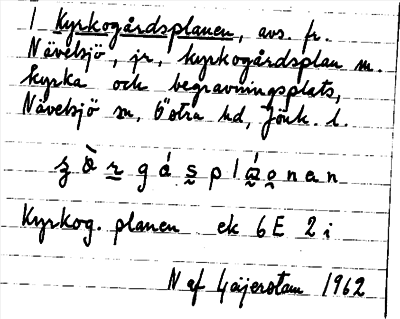 1 Kyrkogårdsplanen, avs. fr.
Nävelsjö, jr, kyrkogårdsplan m.
kyrka och begravningsplats,
Nävelsjö sn, Östra hd, Jönk. l.
Kyrkog. planen ek 6E 2i
N af 1962